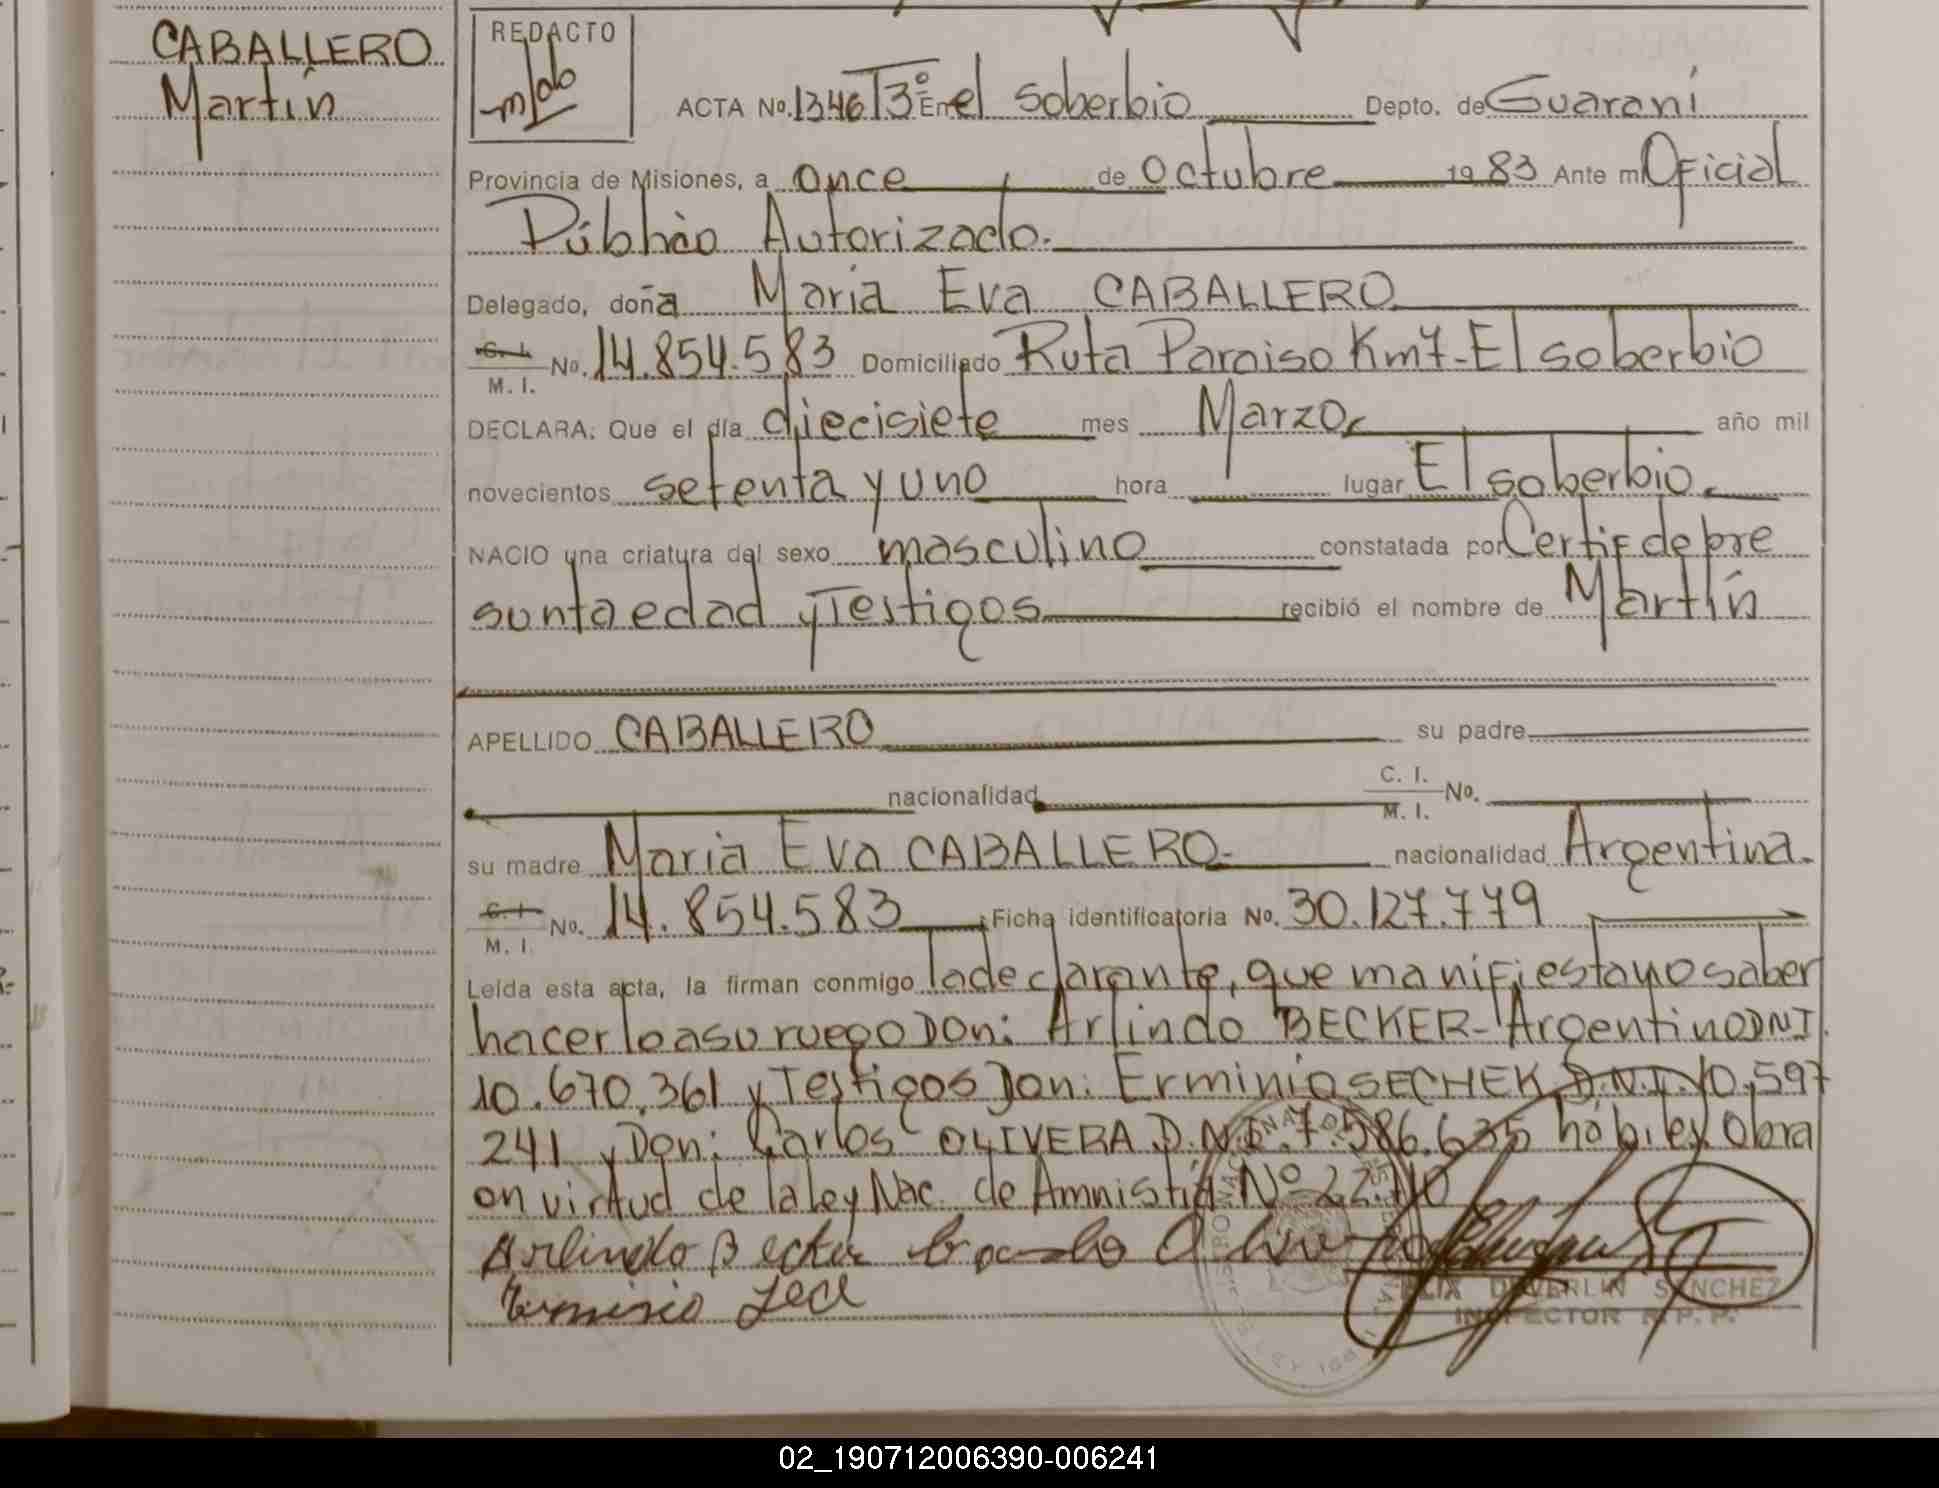 CABALLERO
Martín
REDACTO
ACTA No. 1346 T3º En el soberbio Depto. de Guaraní
Provincia de Misiones, a once de octubre 1983 Ante mí Oficial
Público Autorizado.
Delegado, doña María Eva CABALLERO
C. I. / M. I. No. 14.854.583 Domiciliado Ruta Paraiso Km 7 - El soberbio
DECLARA: Que el día diecisiete mes Marzo año mil
novecientos setenta y uno hora lugar El soberbio.
NACIO una criatura del sexo masculino constatada por Certif de pre
sunta edad y Testigos recibió el nombre de Martín
APELLIDO CABALLERO su padre
nacionalidad C. I. / M. I. No.
su madre María Eva CABALLERO. nacionalidad Argentina.
C. I. / M. I. No. 14.854.583 Ficha identificatoria No. 30.127.779
Leída esta acta, la firman conmigo la declarante, que manifiesta no saber
hacerlo a su ruego Don: Arlindo BECKER - Argentino DNI.
10.670.361 y Testigos Don: Erminio SECHEK D.N.I. 10.597
241 y Don: Carlos OLIVERA D.N.I. 7.586.635 hábiles Obra
en virtud de la ley Nac. de Amnistía Nº 22.
Arlindo Becker
FELIX DEVERLIN SANCHEZ
INSPECTOR R. P. P.
02_190712006390-006241